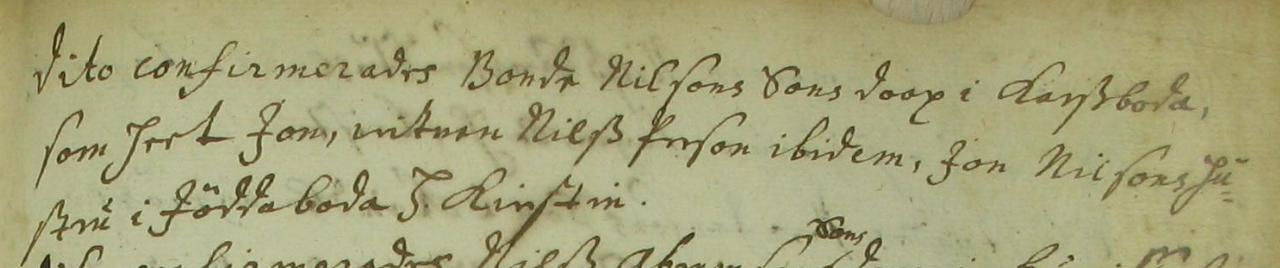 dito confirmerades Bonde Nilsons Sons doop i Karßboda,
som heet Jon, witnen Nilß Person ibidem, Jon Nilsons Hu-
stru i Jöddaboda H. Kirstin.
Sons
confirmerades Nilß